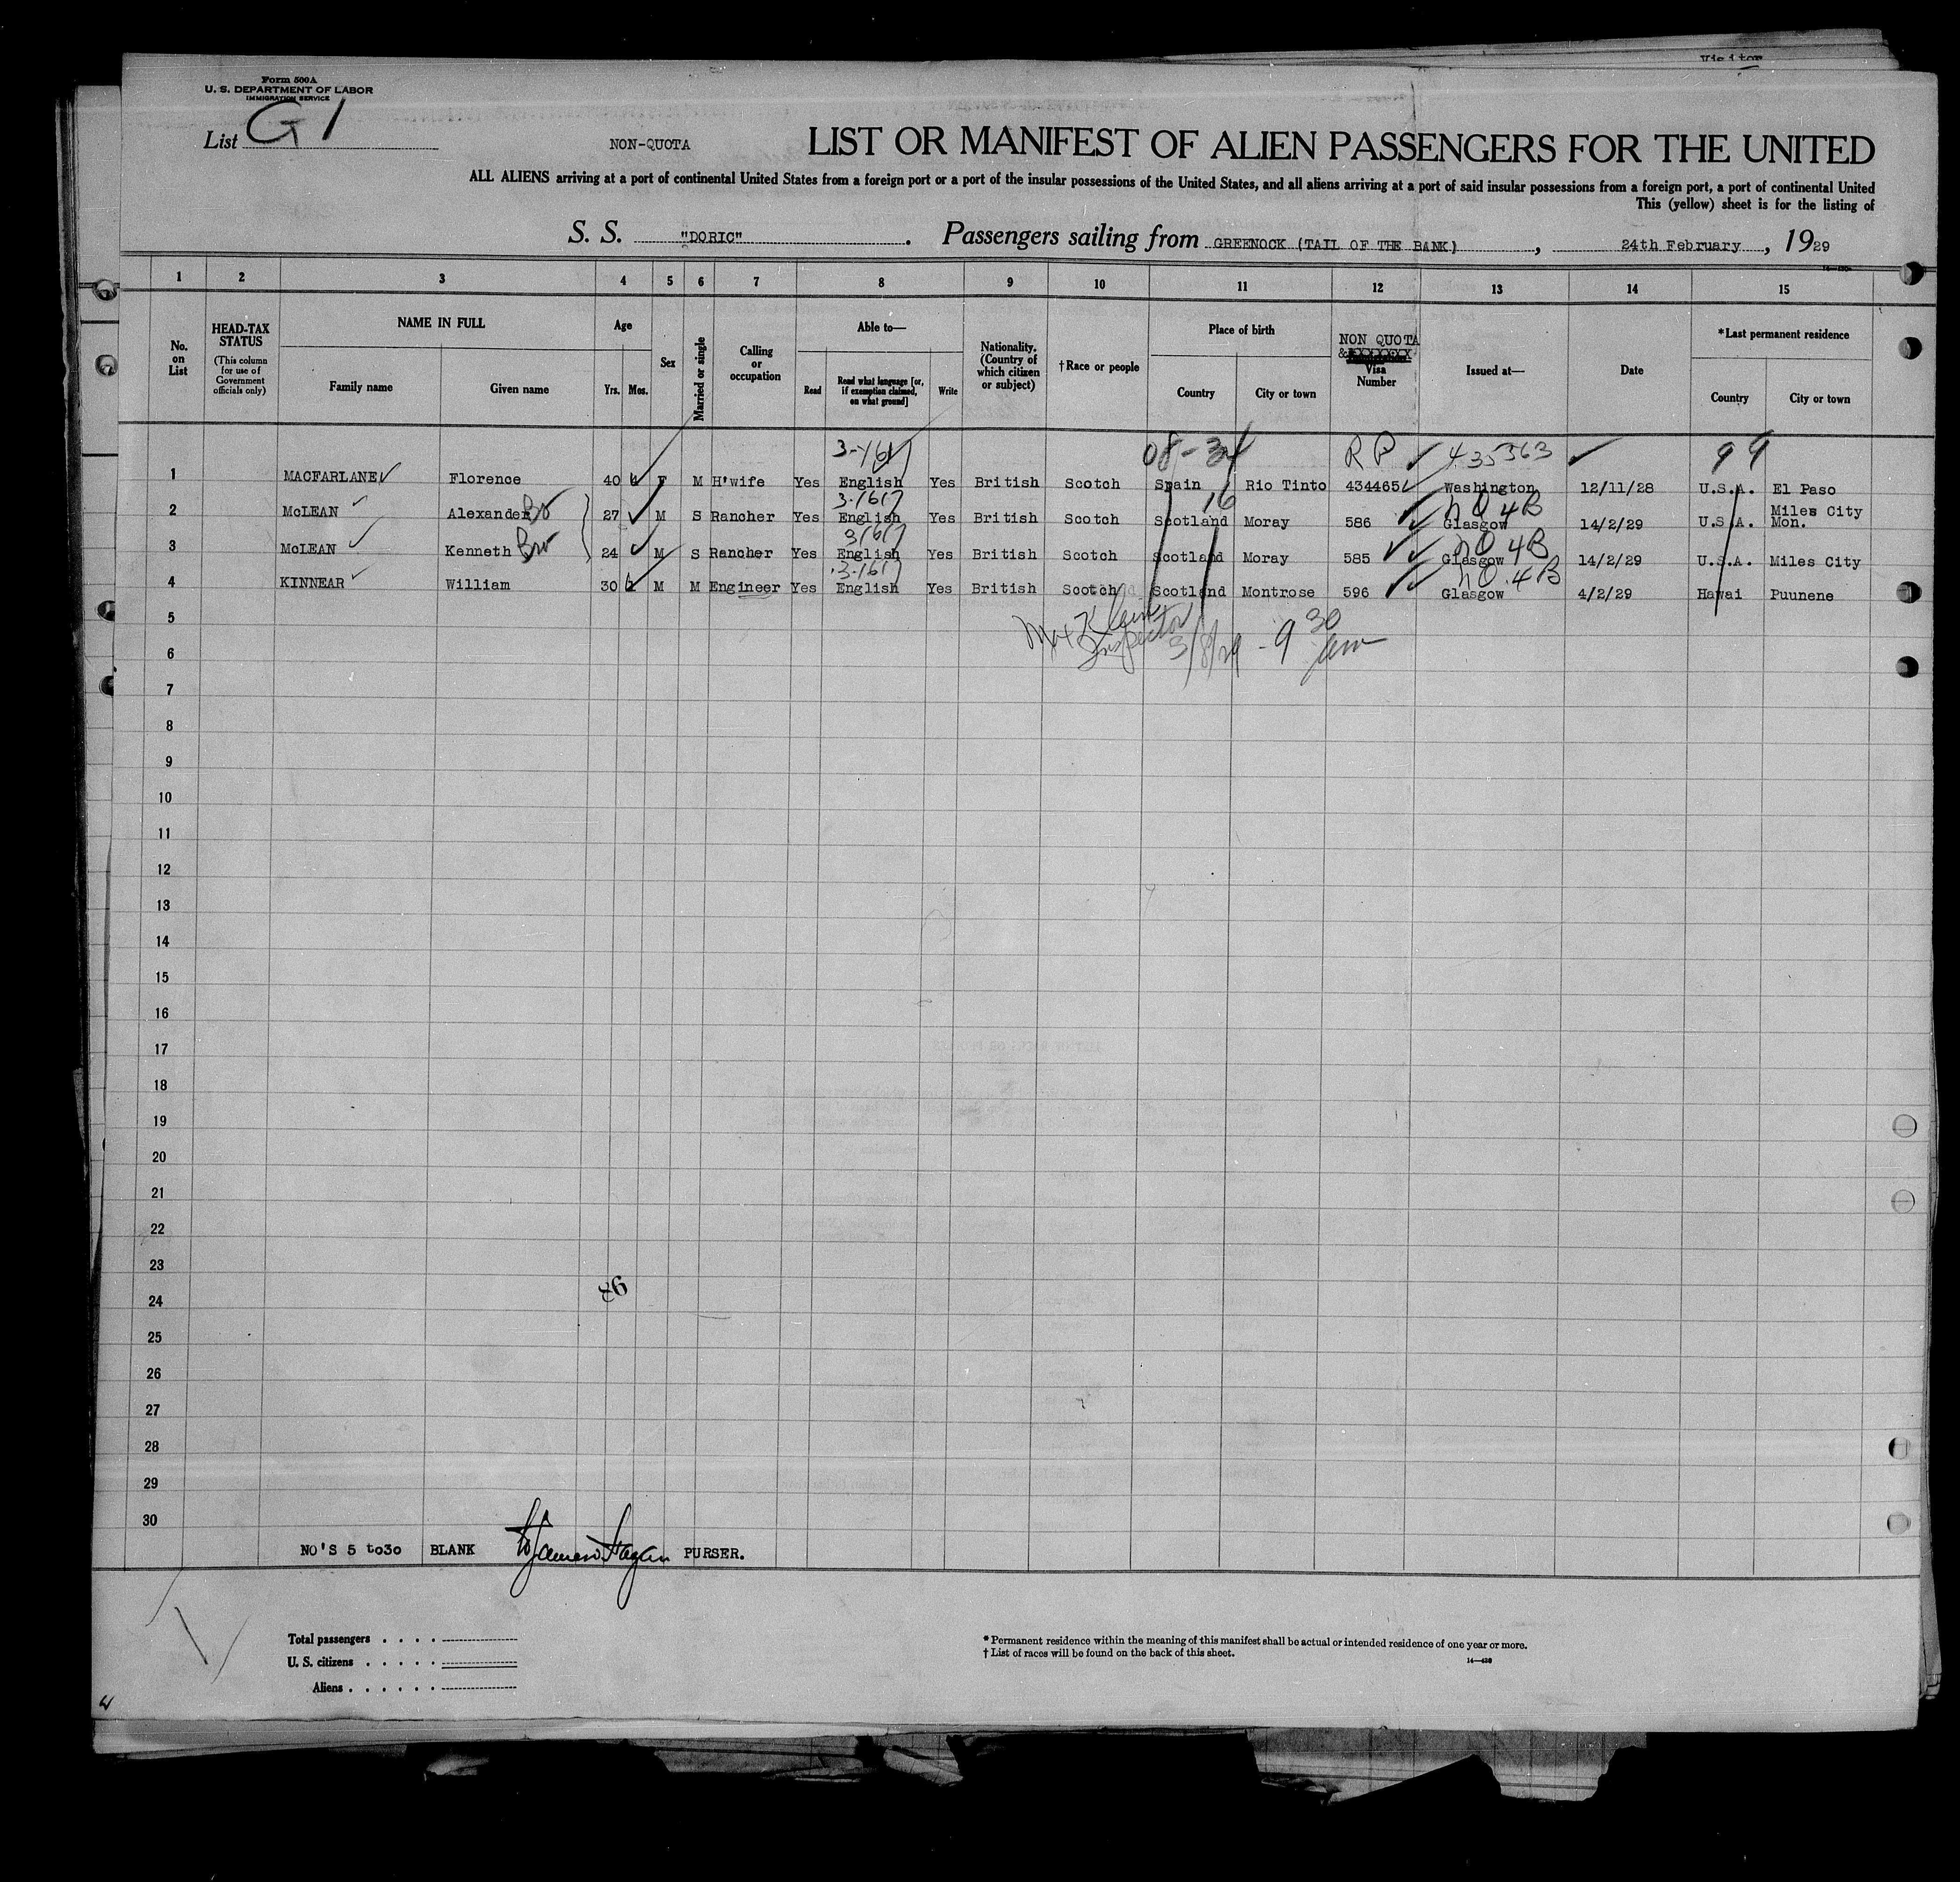 Visitor
Form 500A
U. S. DEPARTMENT OF LABOR
IMMIGRATION SERVICE
List G1
NON-QUOTA
LIST OR MANIFEST OF ALIEN PASSENGERS FOR THE UNITED
ALL ALIENS arriving at a port of continental United States from a foreign port or a port of the insular possessions of the United States, and all aliens arriving at a port of said insular possessions from a foreign port, a port of continental United
This (yellow) sheet is for the listing of
S. S. "DORIC". Passengers sailing from GREENOCK (TAIL OF THE BANK), 24th February, 1929
1 2 3 4 5 6 7 8 9 10 11 12 13 14 15
No. on List
HEAD-TAX STATUS
(This column for use of Government officials only)
NAME IN FULL
Family name Given name
Age
Yrs. Mos.
Sex
Married or single
Calling or occupation
Able to—
Read
Read what language [or, if exemption claimed, on what ground]
Write
Nationality. (Country of which citizen or subject)
†Race or people
Place of birth
Country City or town
NON QUOTA
Visa Number
Issued at—
Date
*Last permanent residence
Country City or town
08-34 RP 435363 99
1 MACFARLANE Florence 40 F M H'wife Yes English Yes British Scotch Spain Rio Tinto 434465 Washington 12/11/28 U.S.A. El Paso
2 McLEAN Alexander Bro 27 M S Rancher Yes English Yes British Scotch Scotland Moray 586 Glasgow 14/2/29 U.S.A. Miles City Mon.
3 McLEAN Kenneth Bro 24 M S Rancher Yes English Yes British Scotch Scotland Moray 585 Glasgow 14/2/29 U.S.A. Miles City
4 KINNEAR William 30 M M Engineer Yes English Yes British Scotch Scotland Montrose 596 Glasgow 4/2/29 Hawai Puunene
5
Inspector 3/8/29 - 9 30 am
6
7
8
9
10
11
12
13
14
15
16
17
18
19
20
21
22
23
24
25
26
27
28
29
30
NO'S 5 to30 BLANK PURSER.
Total passengers
U. S. citizens
Aliens
* Permanent residence within the meaning of this manifest shall be actual or intended residence of one year or more.
† List of races will be found on the back of this sheet.
14—430